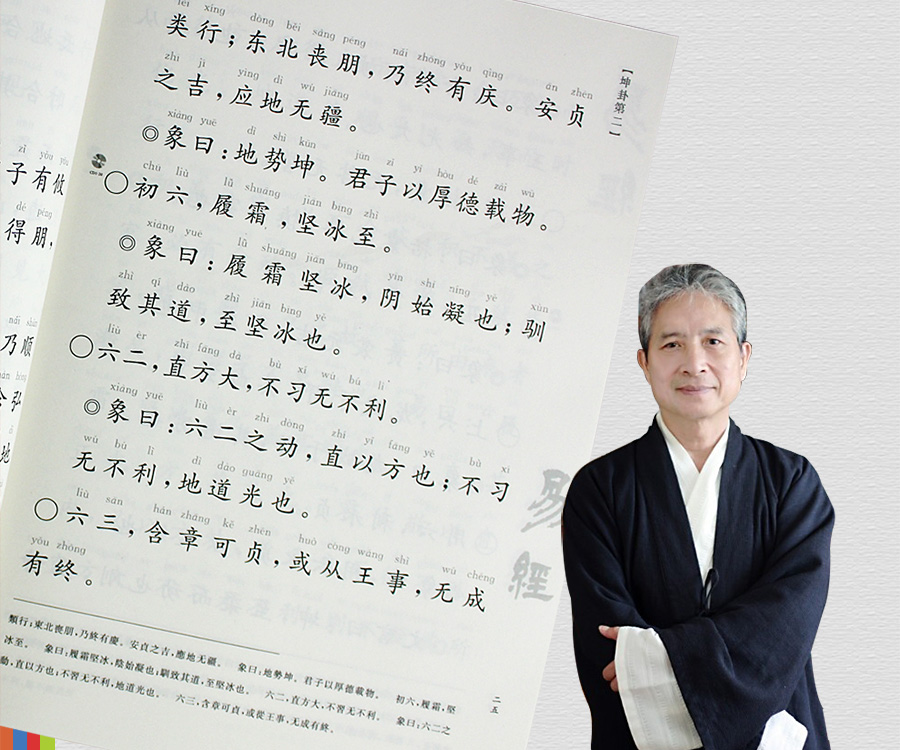 lèi xíng dōng běi sàng péng nǎi zhōng yǒu qìng ān zhēn
类行；东北丧朋，乃终有庆。安贞
zhī jí yìng dì wú jiāng
之吉，应地无疆。
xiàng yuē dì shì kūn jūn zǐ yǐ hòu dé zài wù
◎象曰：地势坤。君子以厚德载物。
chū liù lǚ shuāng jiān bīng zhì
○初六，履霜，坚冰至。
xiàng yuē lǚ shuāng jiān bīng yīn shǐ níng yě xùn
◎象曰：履霜坚冰，阴始凝也；驯
zhì qí dào zhì jiān bīng yě
致其道，至坚冰也。
liù èr zhí fāng dà bù xí wú bú lì
○六二，直方大，不习无不利。
xiàng yuē liù èr zhī dòng zhí yǐ fāng yě bù xí
◎象曰：六二之动，直以方也；不习
wú bú lì dì dào guāng yě
无不利，地道光也。
liù sān hán zhāng kě zhēn huò cóng wáng shì wú chéng
○六三，含章可贞，或从王事，无成
yǒu zhōng
有终。
類行；東北喪朋，乃終有慶。安貞之吉，應地无疆。 象曰：地勢坤。君子以厚德載物。 初六，履霜，堅
冰至。 象曰：履霜堅冰，陰始凝也；馴致其道，至堅冰也。 六二，直方大，不習无不利。 象曰：六二之
動，直以方也；不習无不利，地道光也。 六三，含章可貞，或從王事，无成有終。
【坤卦第二】
易經
二五
zǐ yǒu yōu
子有攸
dé péng
得朋，
nǎi shùn
乃顺
含弘
地